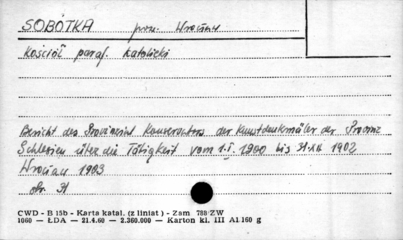 SOBÓTKA pow. Wrocław
Kościół paraf. katolicki
Bericht des Provinzial Konservators der Kunstdenkmäler der Provinz
Schlesien über die Tätigkeit vom 1.I. 1900 bis 31.XII 1902
Wrocław 1903
str. 31
CWD - B 15b - Karta katal. (z liniat) - Zam 788 ZW
1060 — ŁDA — 21.4.60 — 2.360.000 — Karton kl. III A1 160 g